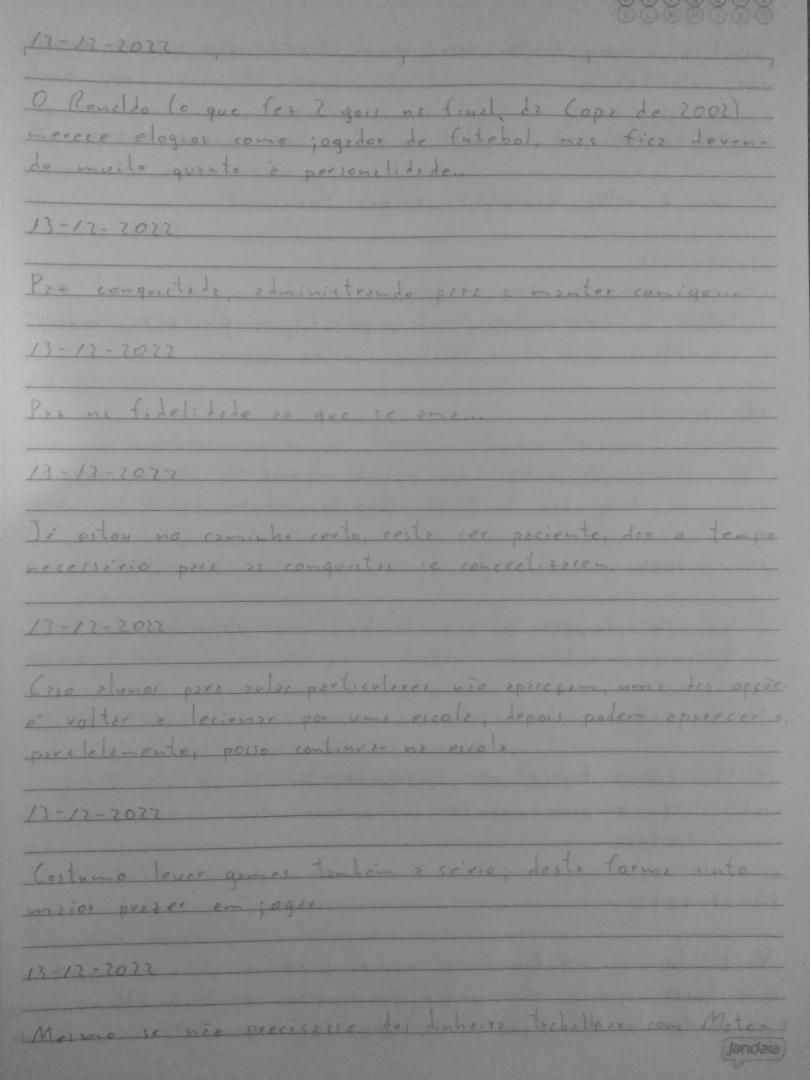 12-12-2022
O Ronaldo (o que fez 2 gols na final da Copa de 2002)
merece elogios como jogador de futebol, mas fica deven-
do muito quanto à personalidade...
13-12-2022
Paz conquistada, administrando para a manter comigo...
13-12-2022
Paz na fidelidade ao que se ama...
13-12-2022
Já estou no caminho certo, resta ser paciente, dar o tempo
necessário para as conquistas se concretizarem.
13-12-2022
Caso alunos para aulas particulares não apareçam, uma das opções
é voltar a lecionar por uma escola; depois podem aparecer e,
paralelamente, posso continuar na escola.
13-12-2022
Costumo levar games também a sério; desta forma sinto
maior prazer em jogar.
13-12-2022
Mesmo se não precisasse do dinheiro, trabalhar com Matem
Jandaia